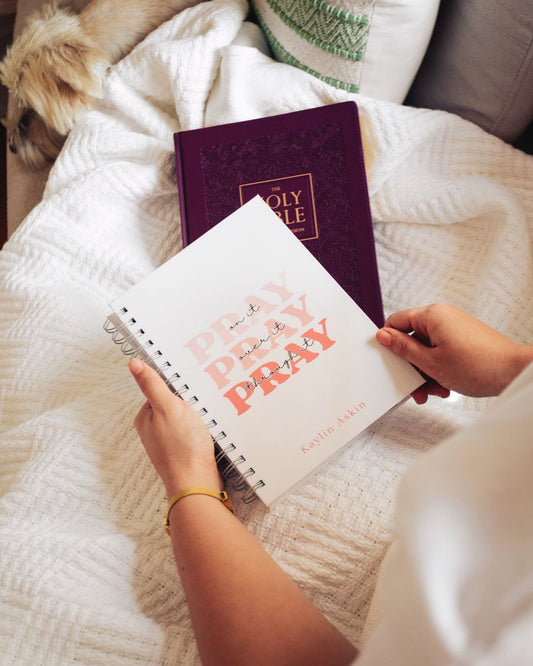 THE
HOLY
BIBLE
PRAY
on it
PRAY
over it
PRAY
through it
Kaylin Askin